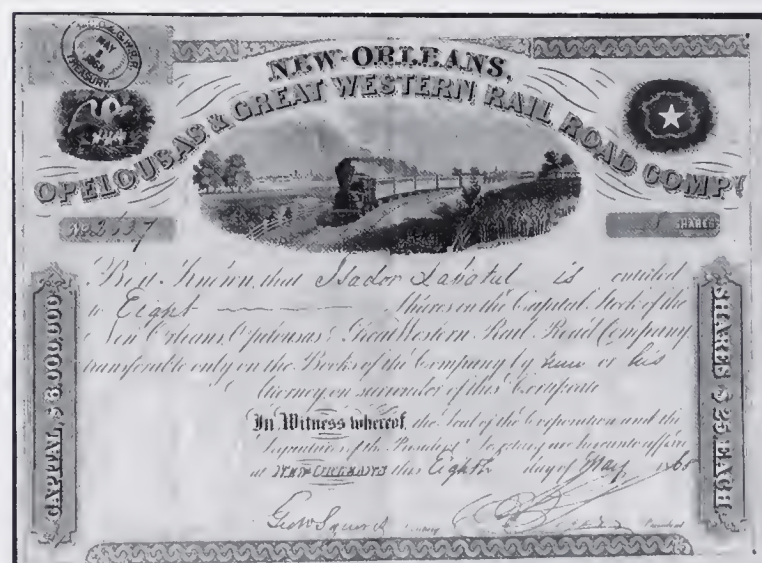 MAY
TREASURY.
NEW-ORLEANS,
OPELOUSAS & GREAT WESTERN RAIL ROAD COMPY
No.
8 SHARES
CAPITAL, $ 6.000.000
SHARES $ 25 EACH
Be it Known, that Isador is entitled
to Eight Shares in the Capital Stock of the
New Orleans, Opelousas & Great Western Rail Road Company
transferable only on the Books of the Company by him or his
Attorney, on surrender of this Certificate
In Witness whereof, the Seal of the Corporation and the
Signatures of the President & Secretary are hereunto affixed
at NEW-ORLEANS this Eighth day of May
Geo W Squires Secretary President